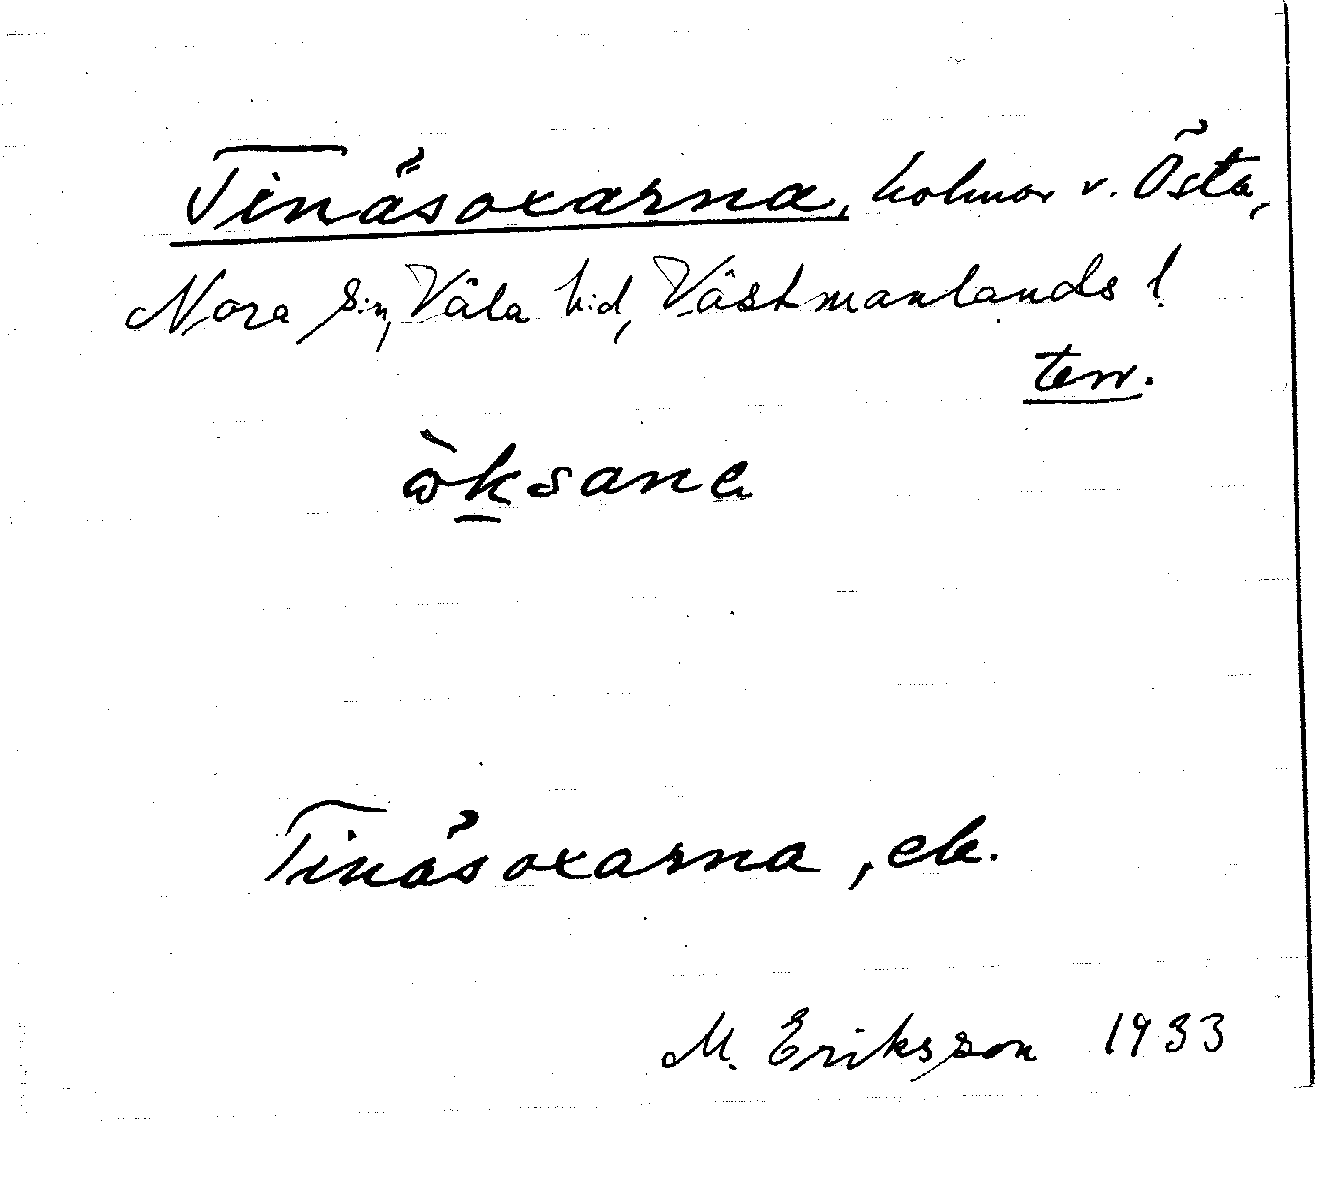 Tinäsoxarna, holmar v. Östa,
Nora s:n, Våla h:d, Västmanlands l.
terr.
òksana
Tinäsoxarna, ek.
M. Eriksson 1933